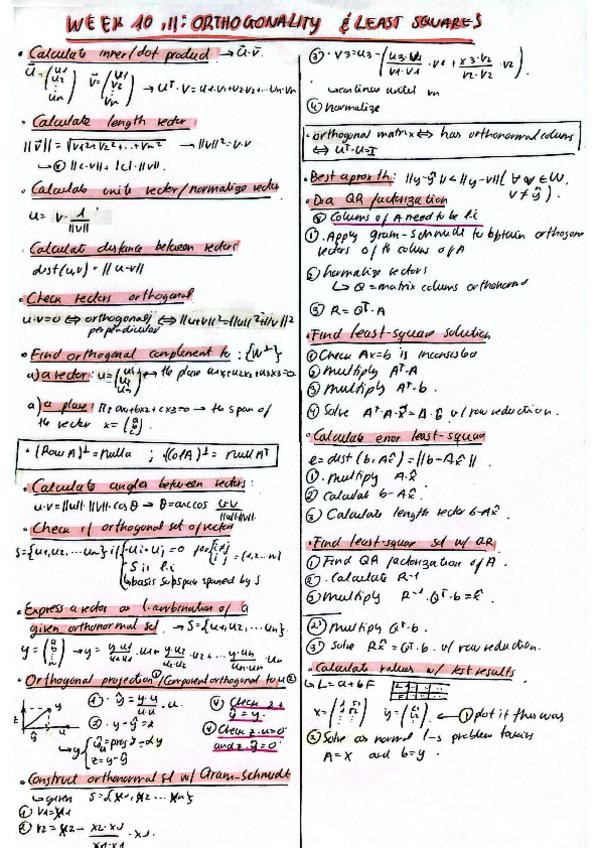 WEEK 10,11: ORTHOGONALITY & LEAST SQUARES
• Calculate inner/dot product → u̅·v̅.
u̅ = (u1 u2 ... un) v̅ = (v1 v2 ... vn) → uᵀ·v = u1·v1+u2·v2... un·vn
• Calculate length vector
||v̅|| = √(v1²+v2²+...+vn²) → ||v||² = v·v
↳ ||c·v|| = |c|·||v||.
• Calculate unite vector/normalize vector
u = v · 1/||v||
• Calculate distance between vectors
dist(u,v) = ||u-v||
• Check vectors orthogonal
u·v=0 ⇔ orthogonal/ ⇔ ||u+v||² = ||u||²+||v||²
perpendicular
• Find orthogonal complement to: {W⊥}
a) a vector: u = (u1 u2 u3) → the plane u1x1+u2x2+u3x3=0
a) a plane: π = ax1+bx2+cx3=0 → the span of
the vector x = (a b c).
• (Row A)⊥ = Nul A ; (Col A)⊥ = Nul Aᵀ
• Calculate angles between vectors:
u·v = ||u||·||v||·cosθ → θ = arccos u·v / ||u||·||v||
• Check if orthogonal set of vectors
S={u1,u2,...un} if
S is l.i
↳ basis subspace spanned by S
• Express a vector as l.combination of a
given orthonormal set → S={u1,u2,...un}.
y = → y = y·u1/u1·u1 · u1 + y·u2/u2·u2 · u2 + ... y·un/un·un · un
• Orthogonal projection① / Component orthogonal to u②
① · ŷ = y·u/u·u · u.
② · y-ŷ = z
↳ y
z = y-ŷ
④ Check z+
ŷ = y.
④ Check z·u=0
and z·ŷ=0
• Construct orthonormal set w/ Gram-Schmidt
↳ given S={x1,x2...xn}
① v1=x1
② v2=x2 - x2·x1/x1·x1 · x1.
③ · v3=u3 - (u3·v1/v1·v1 · v1 + x3·v2/v2·v2 · v2).
↳ continue until vn
④ normalize
• orthogonal matrix ⇔ has orthonormal colums
⇔ uᵀ·u=I
• Best aprox th: ||y-ŷ|| < ||y-v|| (∀ v∈W,
v≠ŷ).
• Do a QR factorization
Columns of A need to be l.i
① · Apply gram-schmidt to obtain orthogonal
vectors of the colums of A
② normalize vectors
↳ Q = matrix colums orthonormal
③ R = Qᵀ·A
• Find least-square solution
① Check Ax=b is inconsistent
② Multiply Aᵀ·A
③ Multiply Aᵀ·b.
④ Solve Aᵀ·A·x̂ = A·b w/ row reduction.
• Calculate error least-square
e = dist(b,Ax̂) = ||b-Ax̂||
①. Multiply A·x̂
② Calculate b-Ax̂.
③ Calculate length vector b-Ax̂.
• Find least-square sol w/ QR
① Find QR factorization of A.
② · Calculate R⁻¹
③ Multiply R⁻¹·Qᵀ·b=x̂.
②' Multiply Qᵀ·b.
③' Solve Rx̂=Qᵀ·b. w/ row reduction.
• Calculate values w/ test results
↳ L = a+bF
x = y = ① plot it this way
② Solve as normal l-s problem
A=x and b=y.